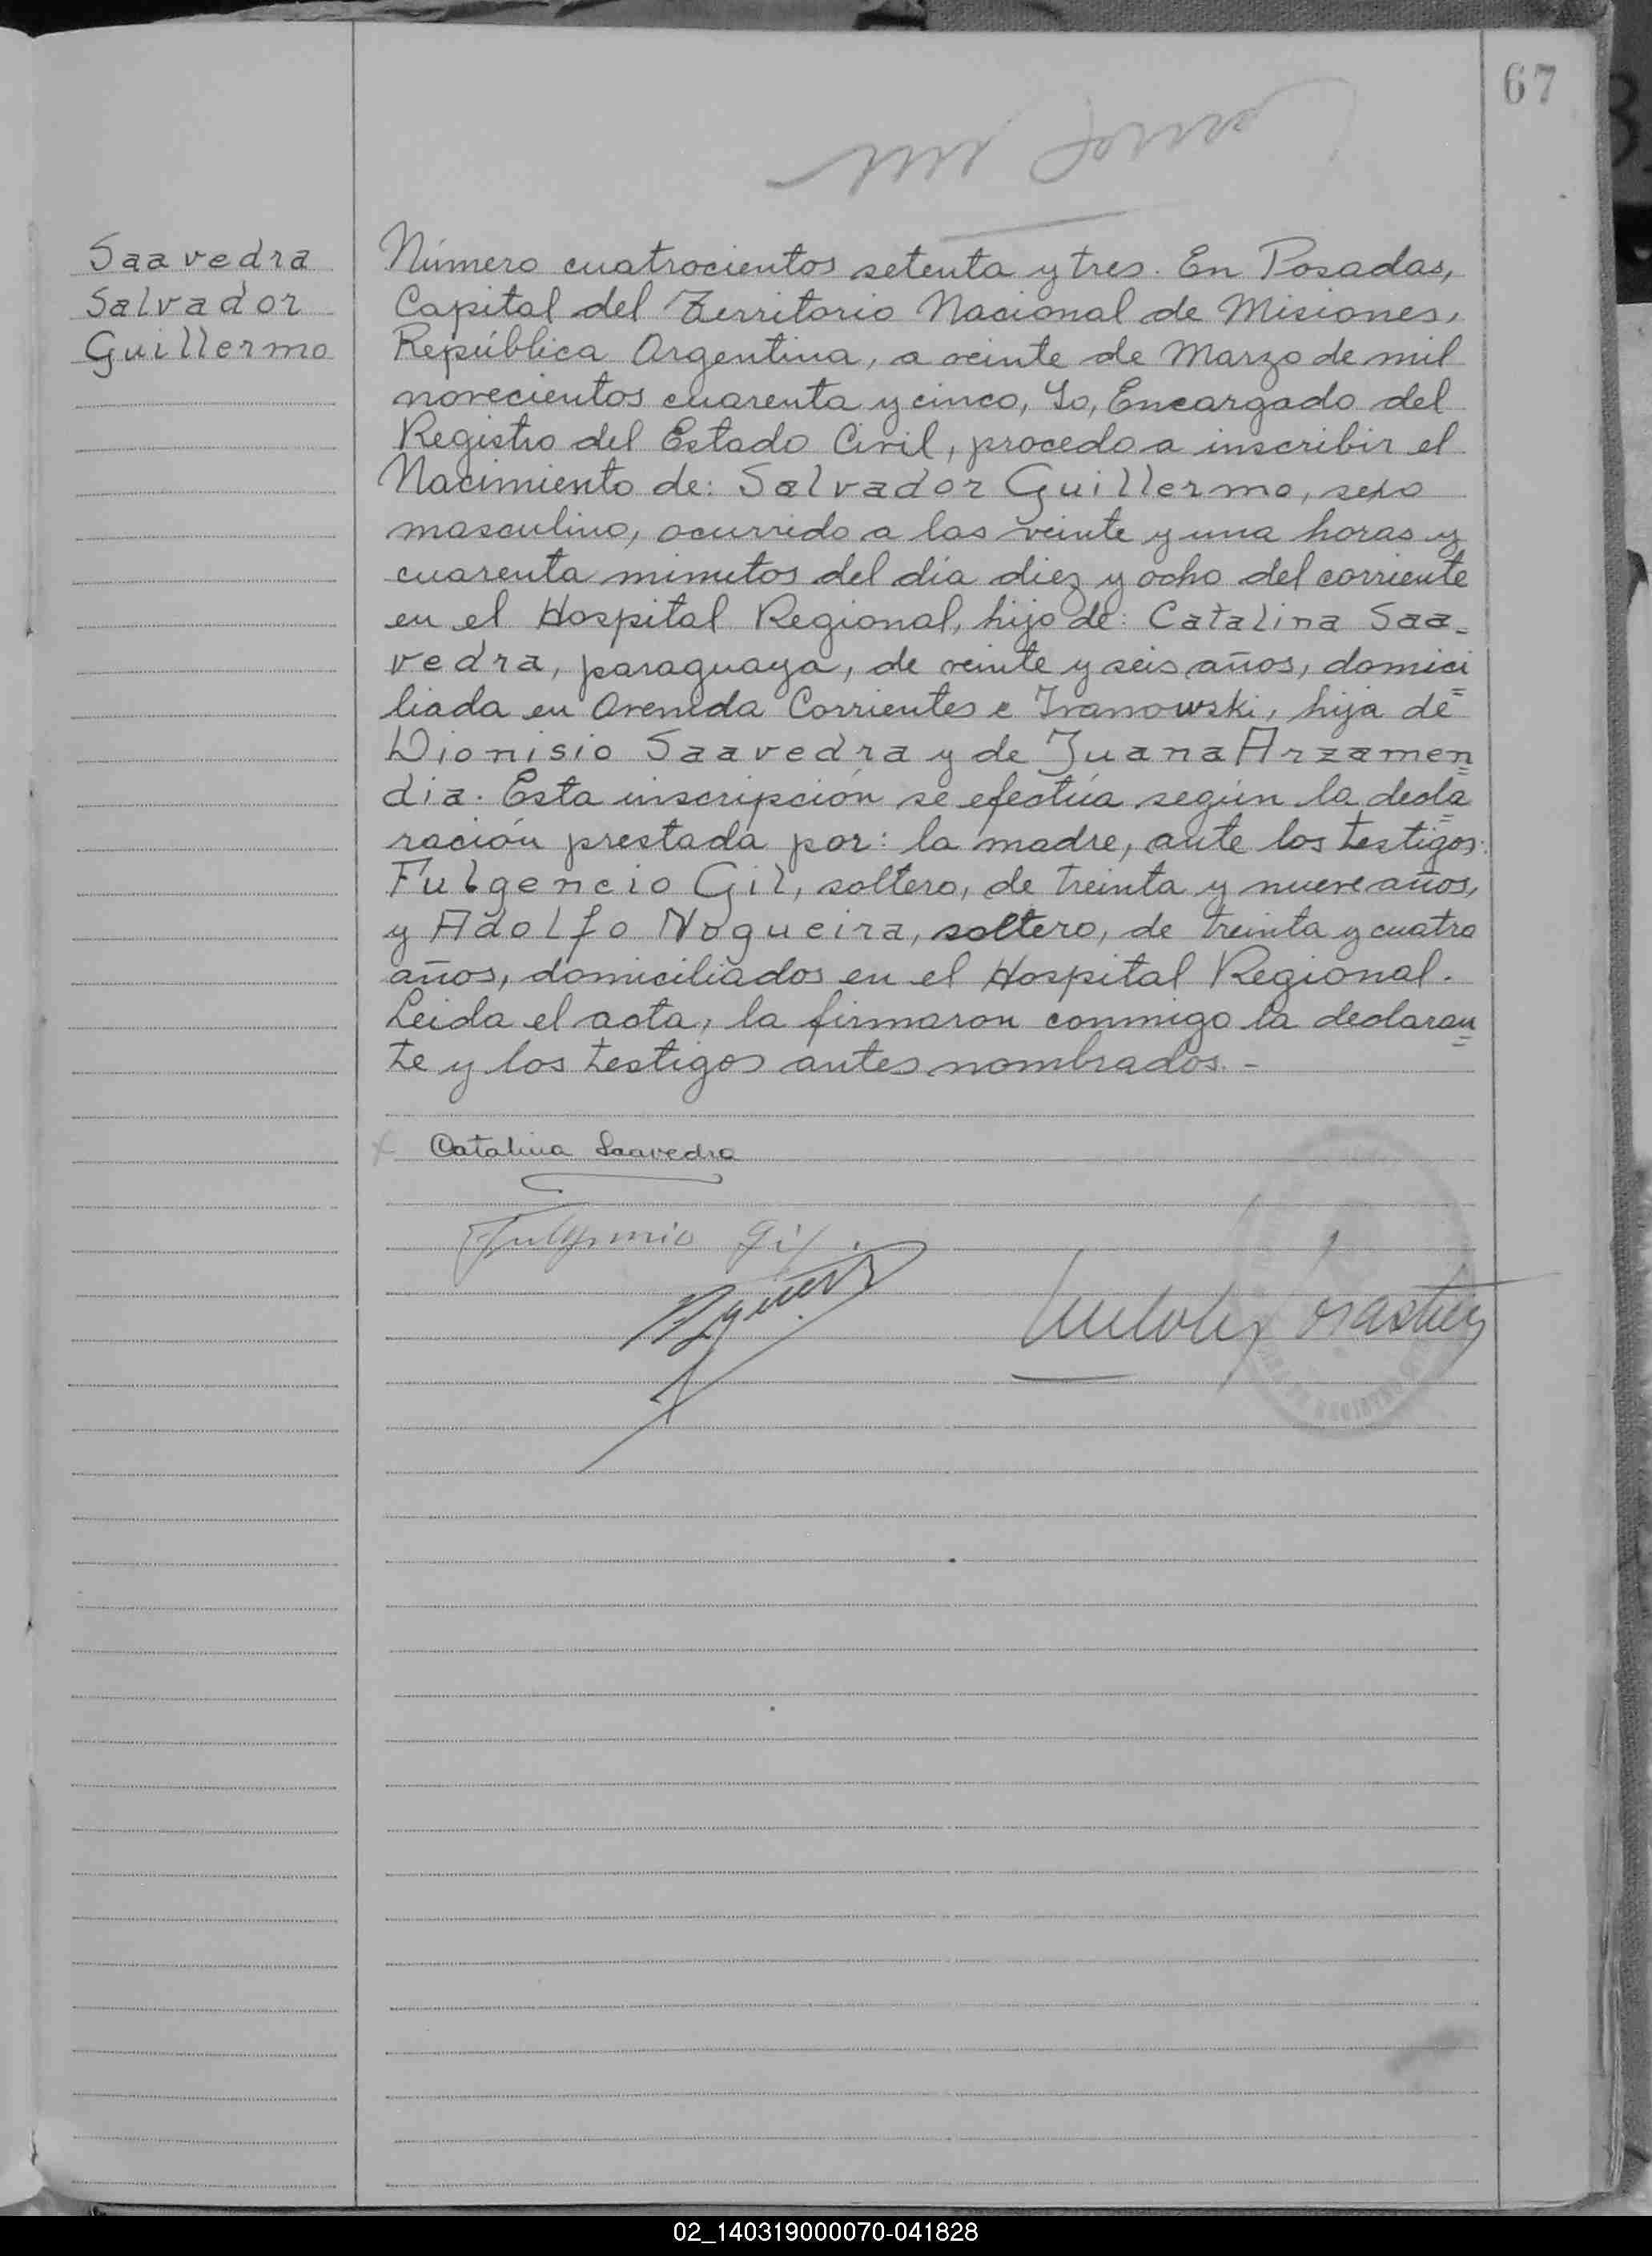 67
Saavedra
Salvador
Guillermo
Número cuatrocientos setenta y tres. En Posadas,
Capital del Territorio Nacional de Misiones,
República Argentina, a veinte de Marzo de mil
novecientos cuarenta y cinco, Yo, Encargado del
Registro del Estado Civil, procedo a inscribir el
Nacimiento de: Salvador Guillermo, sexo
masculino, ocurrido a las veinte y una horas y
cuarenta minutos del día diez y ocho del corriente
en el Hospital Regional, hijo de: Catalina Saa-
vedra, paraguaya, de veinte y seis años, domici
liada en Avenida Corrientes e Ivanowski, hija de
Dionisio Saavedra y de Juana Arzamen=
dia. Esta inscripción se efectúa según la decla=
ración prestada por: la madre, ante los testigos:
Fulgencio Gil, soltero, de treinta y nueve años,
y Adolfo Nogueira, soltero, de treinta y cuatro
años, domiciliados en el Hospital Regional.
Leida el acta, la firmaron conmigo la declaran=
te y los testigos antes nombrados. -
Catalina Saavedra
Fulgencio Gil
02_140319000070-041828